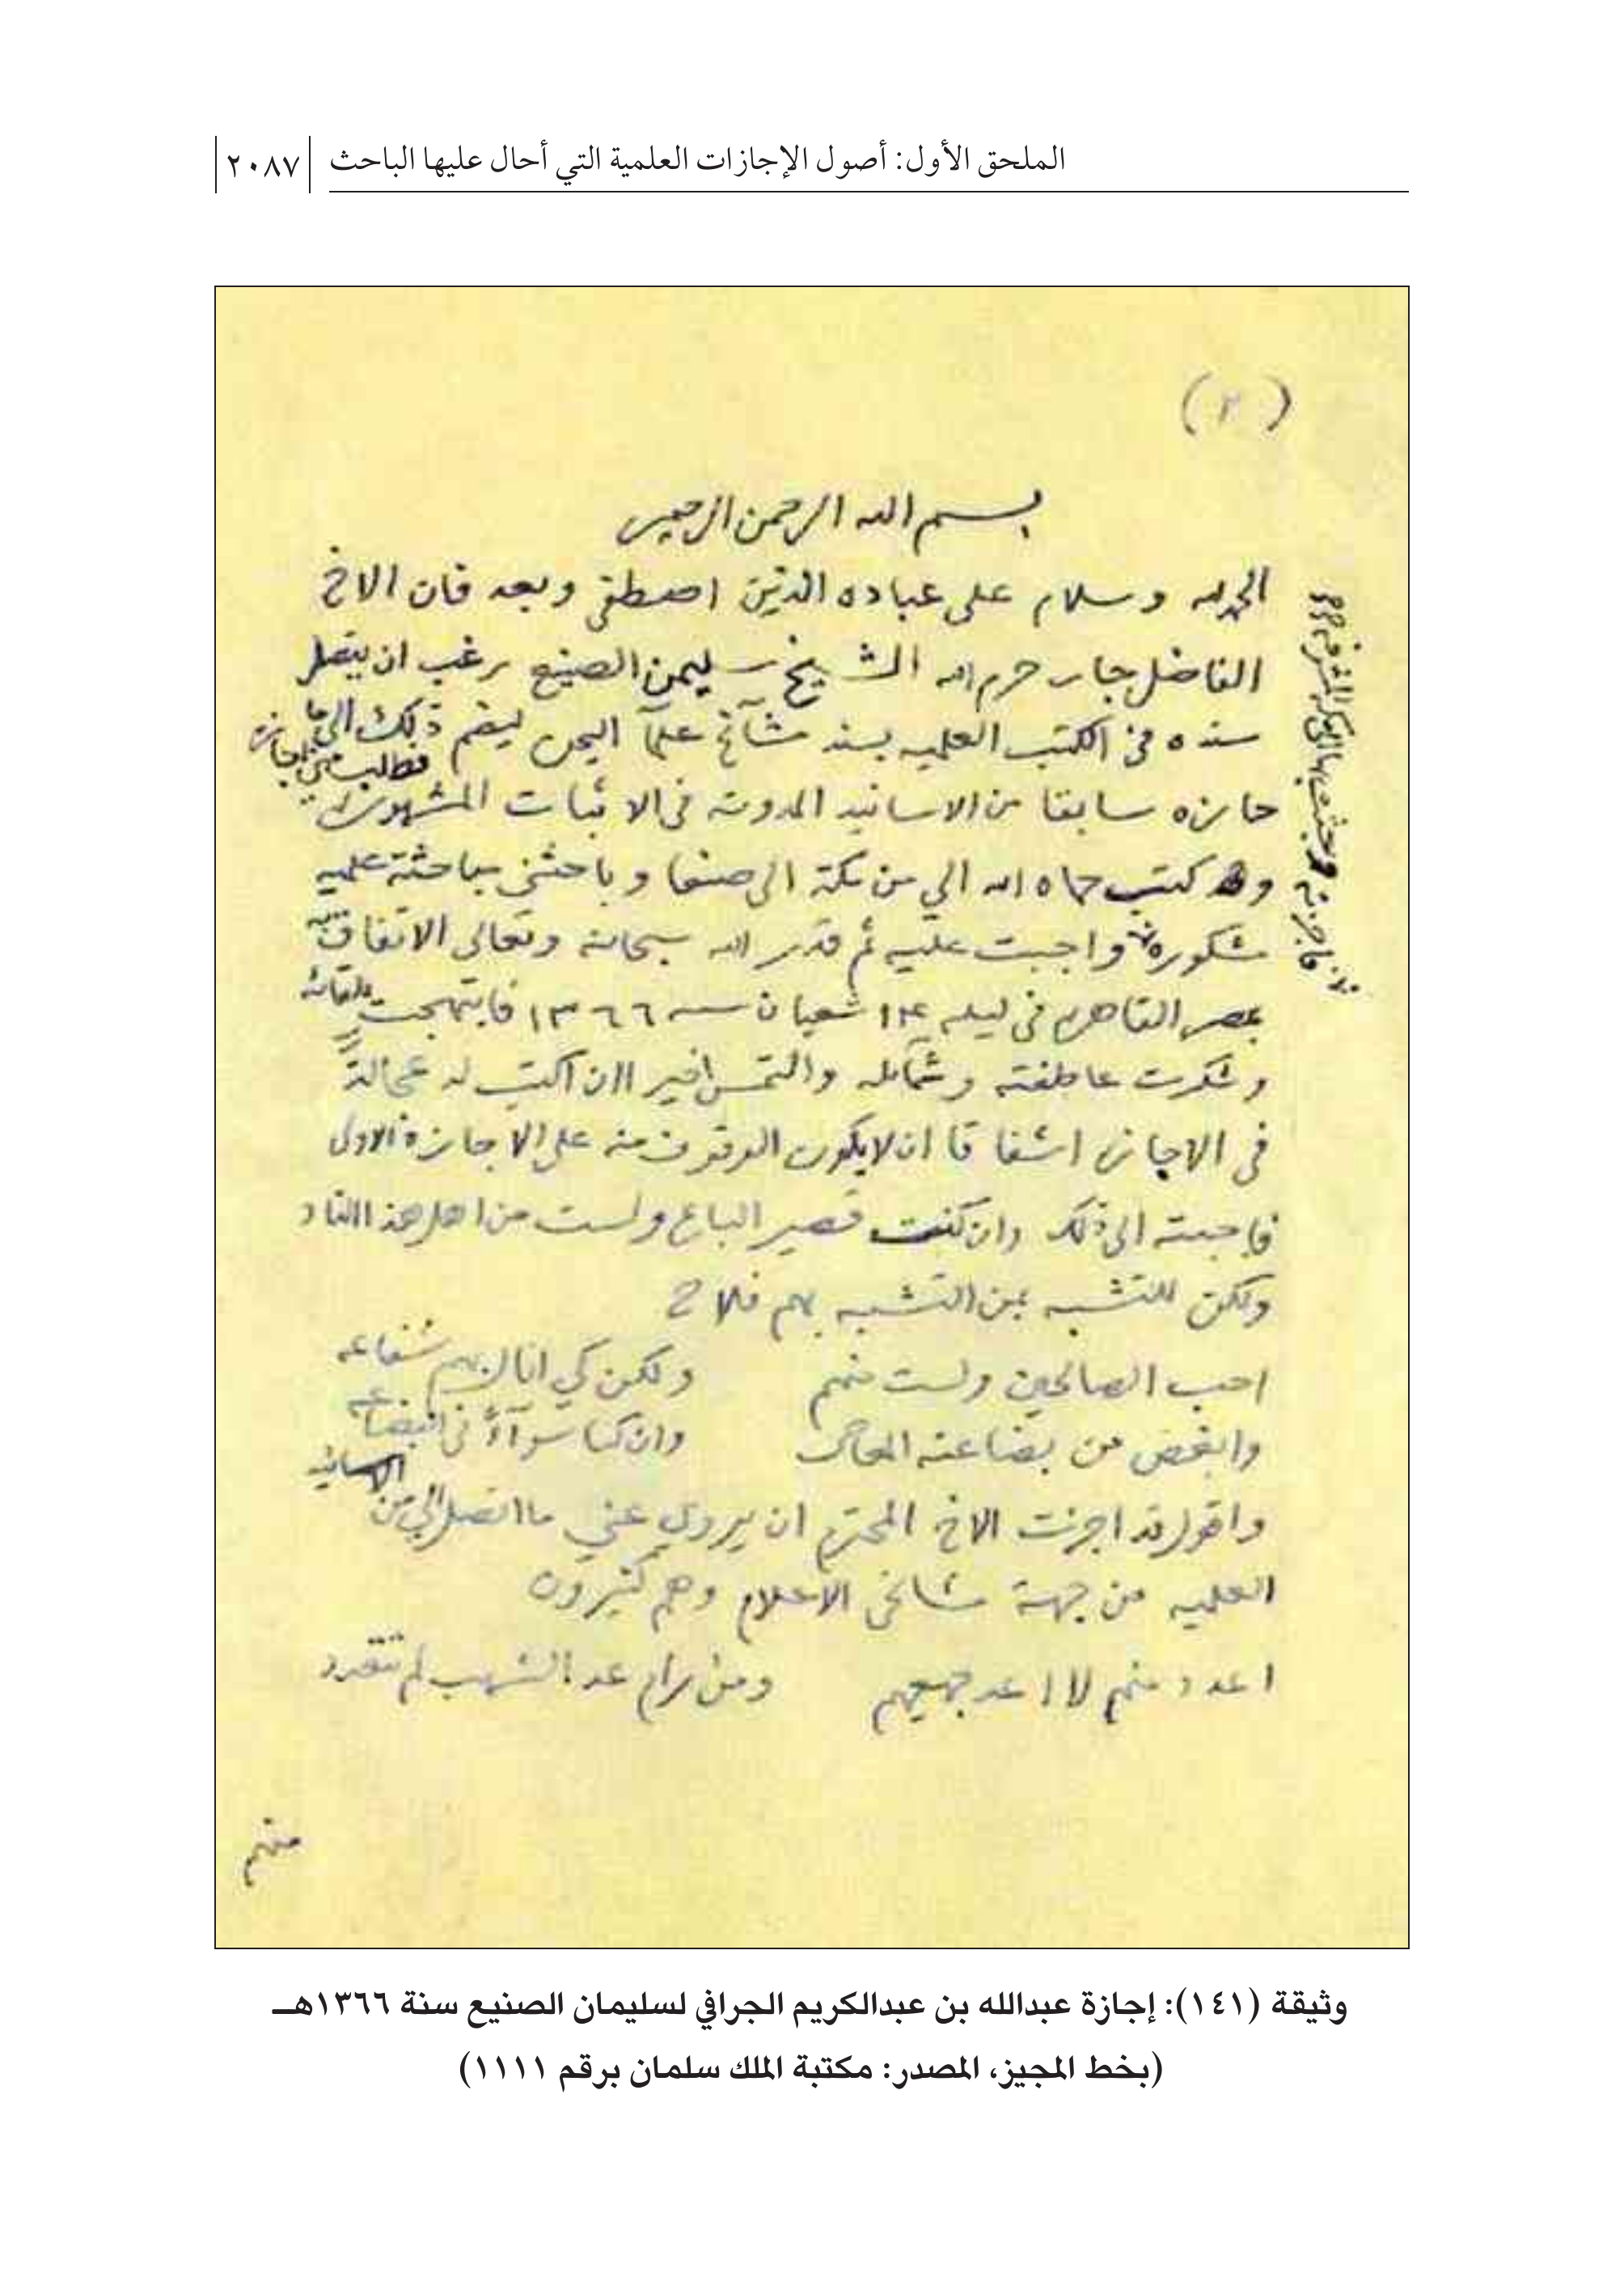 الملحق الأول: أصول الإجازات العلمية التي أحال عليها الباحث ٢٠٨٧
(٢)
بسم الله الرحمن الرحيم
الحمد لله وسلام على عباده الذين اصطفى وبعد فان الاخ
الفاضل جار حرم الله الشيخ سليمن الصنيع رغب ان يتصل
سنده في الكتب العلميه بسند مشآئخ علمآ اليمن ليضم ذلك الى ما
حازه سابقا من الاسانيد المدونه في الاثبات المشهوره
فطلب مني اجازة
و كتب حماه الله الي من مكة الى صنعا وباحثني مباحثة علميه
مشكوره واجبت عليه ثم قدر الله سبحانه وتعالى الاتفاق به
بمصر القاهره في ليله ١٤ شعبان سنه ١٣٦٦ فابتهجت بلقائه
وشكرت عاطفته وشمآئله والتمس اخيرا ان اكتب له عجالة
في الاجازه اشفاقا ان لا يكون الوقوف منه على الاجازة الاولى
فاجبته الى ذلك وان كنت قصير الباع ولست من اهل هذا
ولكن للتشبه بمن التشبه بهم فلاح
احب الصالحين ولست منهم ولكن كي انال بهم شفاعه
وابغض من بضاعته المعاصي وان كنا سوآءً في البضاعه
واقول قد اجزت الاخ المحترم ان يروي عني ما اتصل الي من الاسانيد
العلميه من جهة مشائخي الاعلام وهم كثيرون
اعدد منهم لا اعد جميعهم ومن رام عد الشهب لم تتعدد
منهم
وثيقة (١٤١): إجازة عبدالله بن عبدالكريم الجرافي لسليمان الصنيع سنة ١٣٦٦هـ
(بخط المجيز، المصدر: مكتبة الملك سلمان برقم ١١١١)